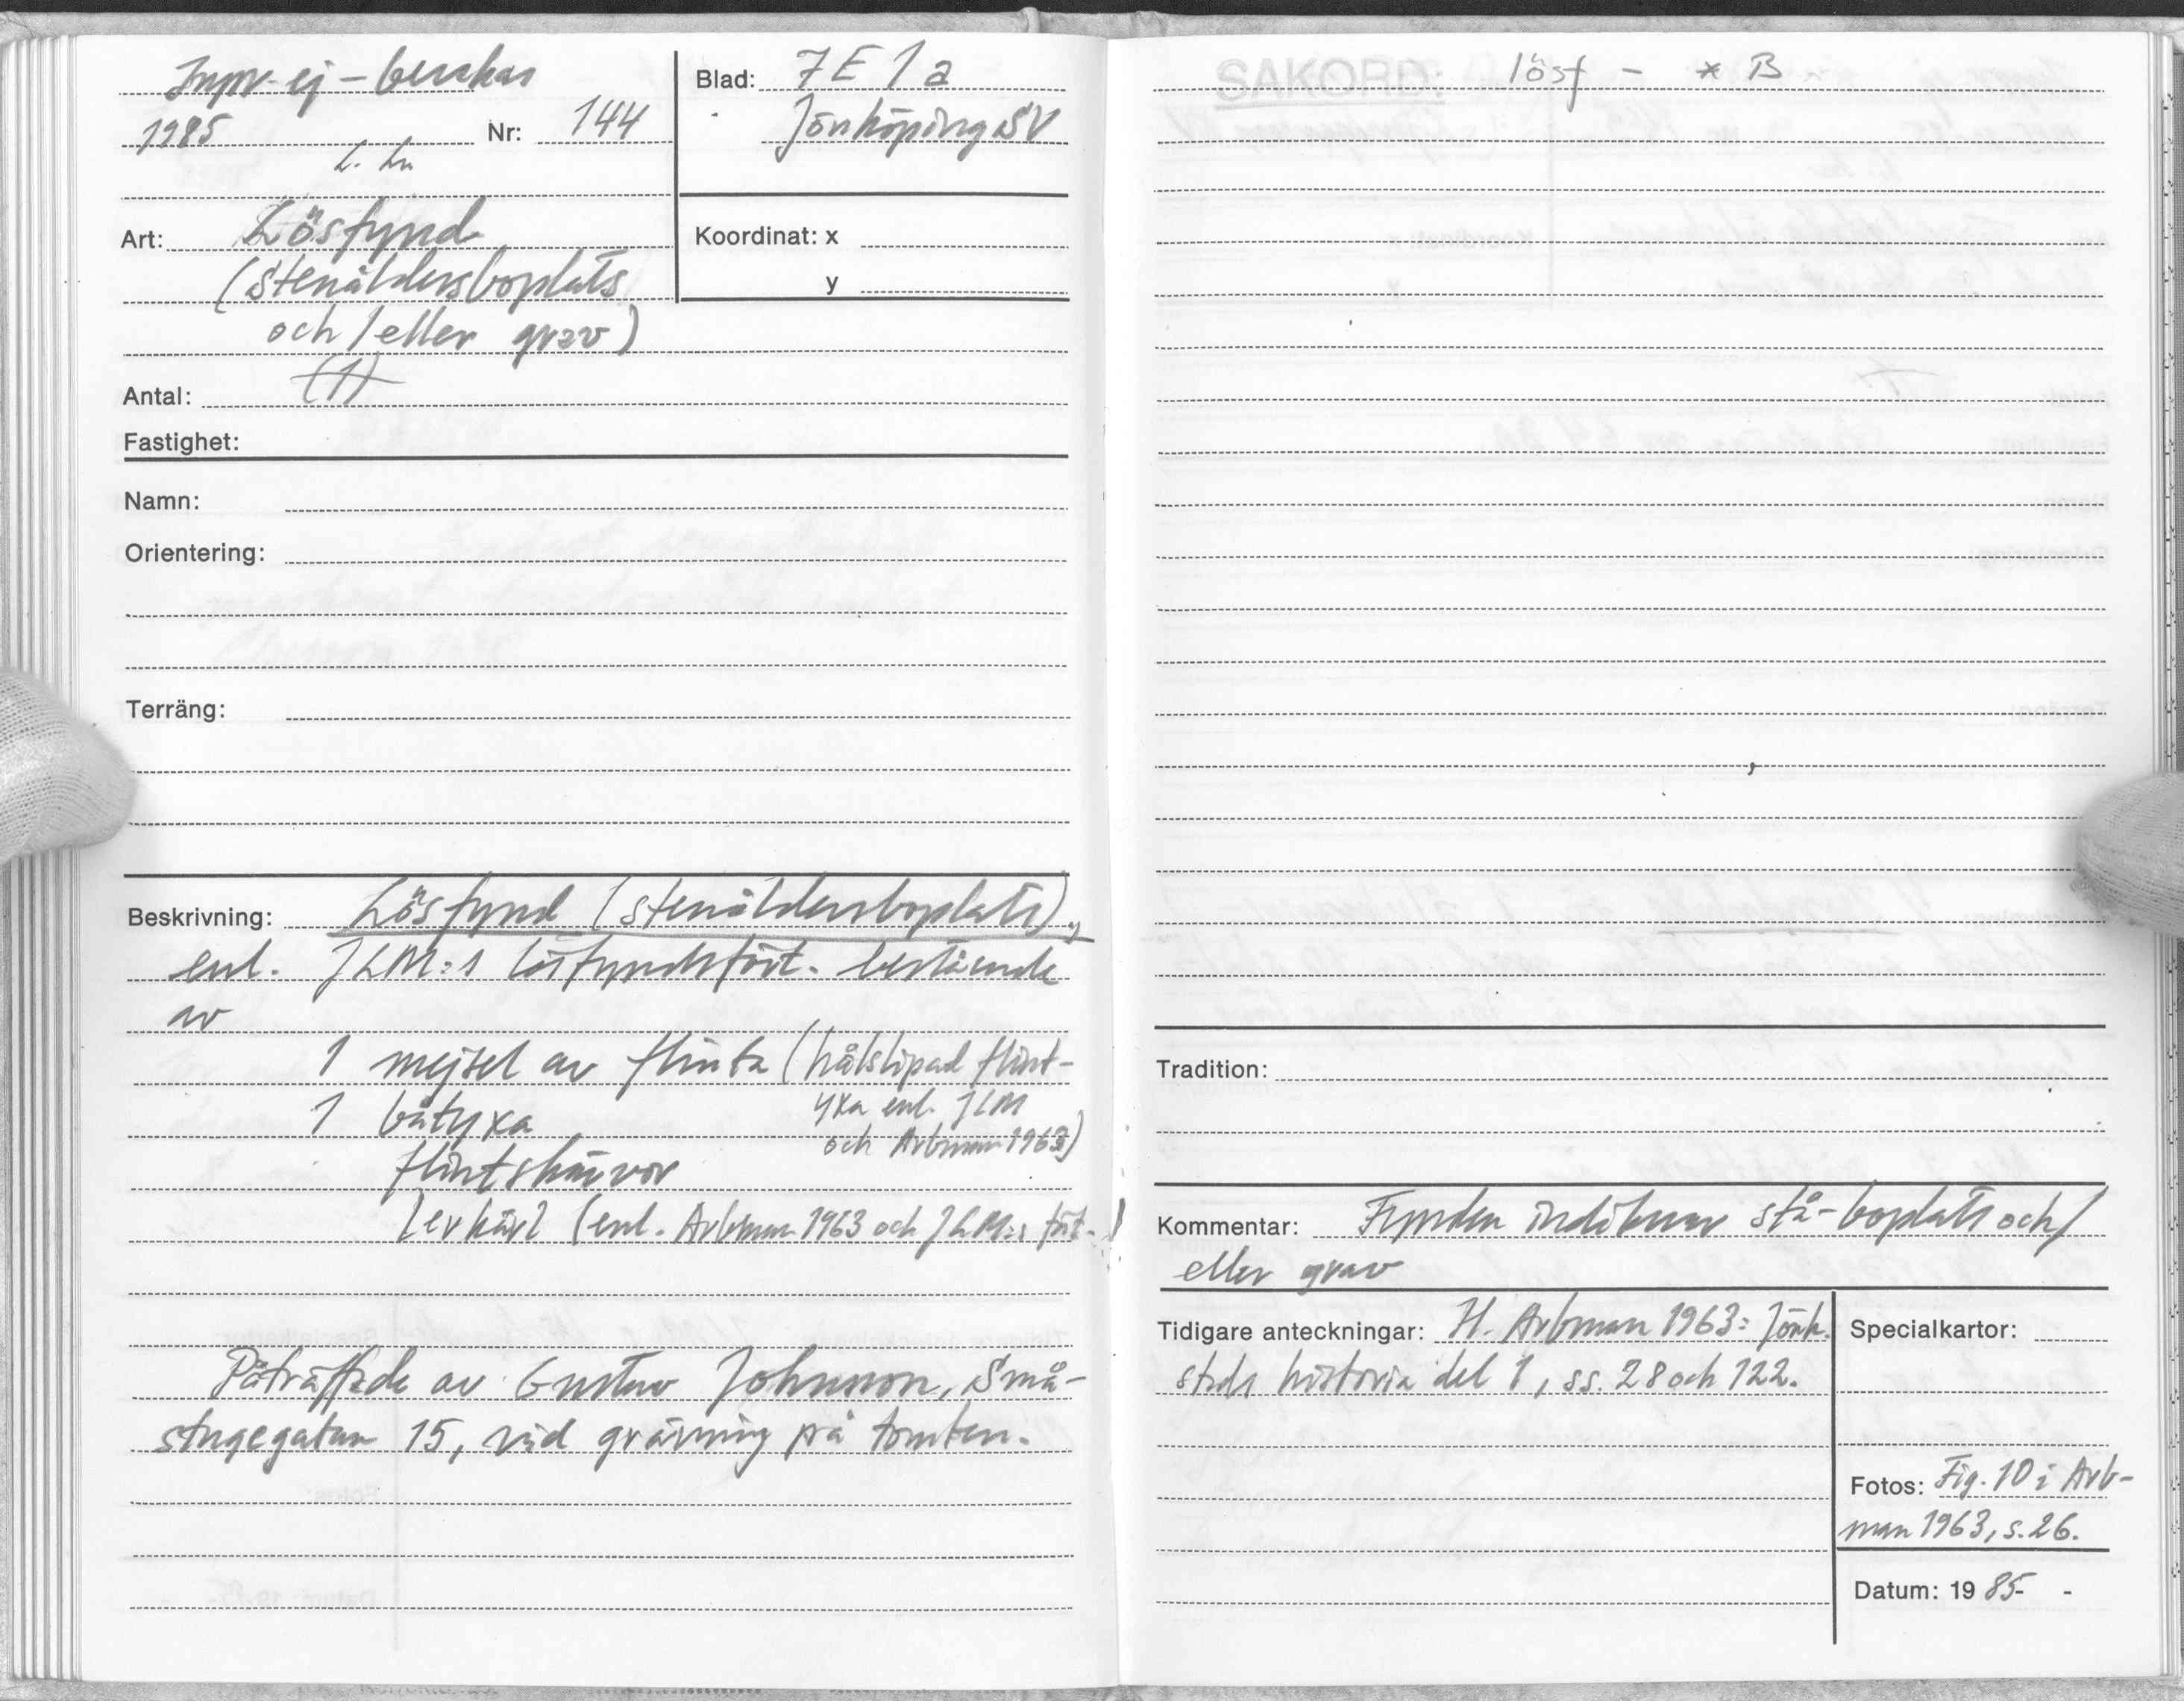 Inpr. ej - besökas
1985 Nr: 144
L. Ln
Blad: 7E 1a
Jönköping SV
Art: Lösfynd
(stenåldersboplats
och/eller grav)
Koordinat: x
y
Antal: (1)
Fastighet:
Namn:
Orientering:
Terräng:
Beskrivning: Lösfynd (stenåldersboplats),
enl. JLM:s lösfyndsfört. bestående
av
1 mejsel av flinta (hålslipad flint-
yxa enl. JLM
och Arbman 1963)
1 båtyxa
flintskärvor
lerkärl (enl. Arbman 1963 och JLM:s fört.)
Påträffade av Gustav Johnsson, Små-
stugegatan 15, vid grävning på tomten.
SAKORD: lösf - * B
Tradition:
Kommentar: Fynden indikerar stå-boplats och/
eller grav
Tidigare anteckningar: H. Arbman 1963: Jönk.
stads historia del 1, ss. 28 och 122.
Specialkartor:
Fotos: Fig. 10 i Arb-
man 1963, s. 26.
Datum: 1985- -